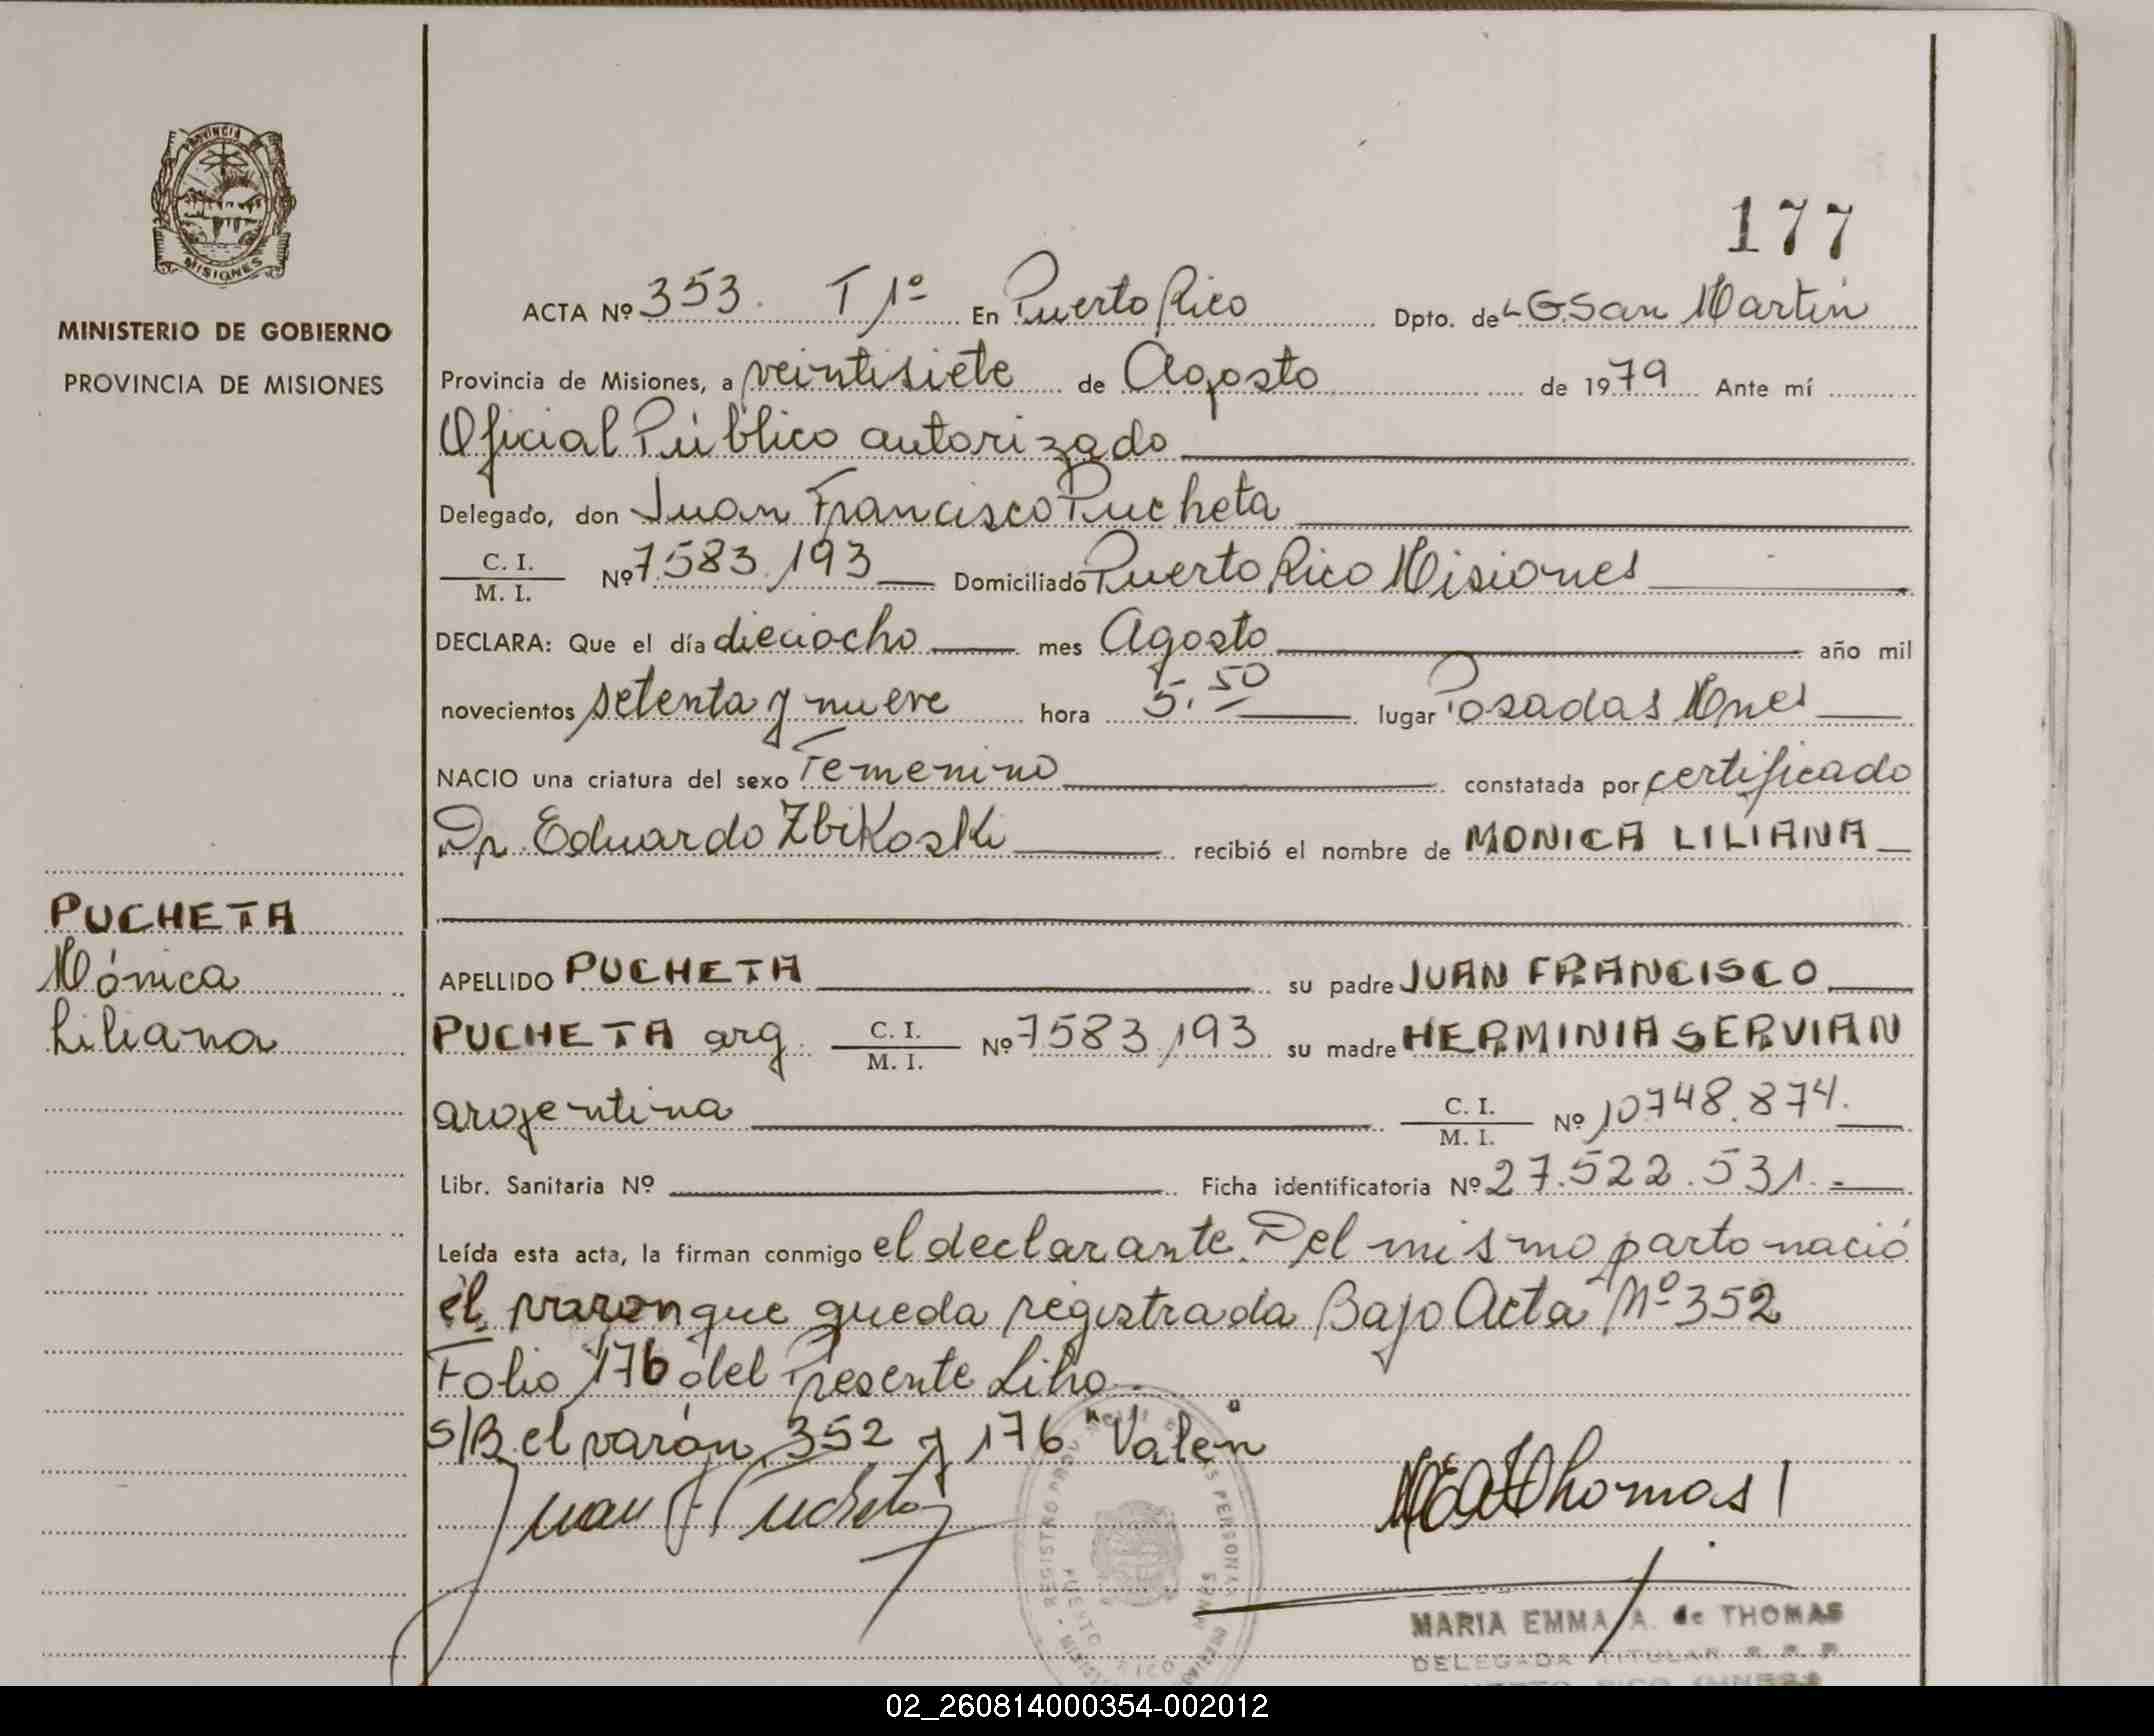 PROVINCIA DE
MISIONES
MINISTERIO DE GOBIERNO
PROVINCIA DE MISIONES
PUCHETA
Mónica
Liliana
177
ACTA Nº 353. T 1º En Puerto Rico Dpto. de L G. San Martín
Provincia de Misiones, a veintisiete de Agosto de 1979 Ante mí
Oficial Público autorizado
Delegado, don Juan Francisco Pucheta
C. I. / M. I. Nº 7.583.193 Domiciliado Puerto Rico Misiones
DECLARA: Que el día dieciocho mes Agosto año mil
novecientos setenta y nueve hora 5.50 lugar Posadas Mnes
NACIO una criatura del sexo Femenino constatada por certificado
Dr. Eduardo Zbikoski recibió el nombre de MONICA LILIANA
APELLIDO PUCHETA su padre JUAN FRANCISCO
PUCHETA arg. C. I. / M. I. Nº 7583.193 su madre HERMINIA SERVIAN
argentina C. I. / M. I. Nº 10.748.874.
Libr. Sanitaria Nº Ficha identificatoria Nº 27.522.531.-
Leída esta acta, la firman conmigo el declarante. Del mismo parto nació
el varon que queda registrada Bajo Acta Nº 352
Folio 176 del Presente Libro.
S/B. el varón, 352 y 176 "Valen"
Juan F. Pucheta
M E A d Thomas
MARIA EMMA A. de THOMAS
DELEGADA TITULAR R. P. P.
PUERTO RICO (MNES)
02_260814000354-002012